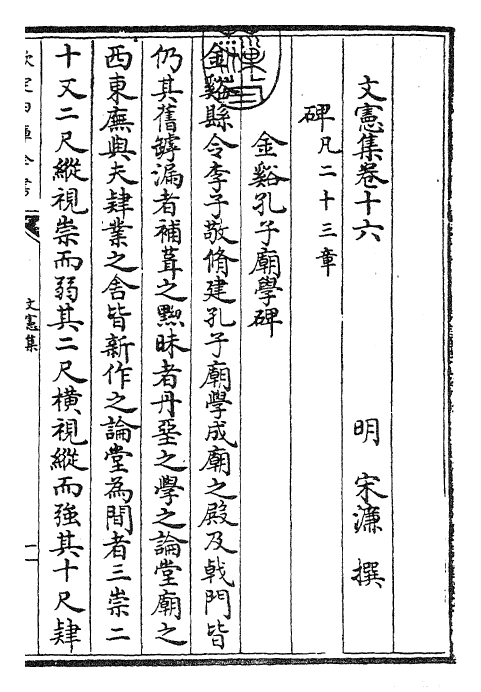 文憲集卷十六
明 宋濂 撰
碑凡二十三章
金谿孔子廟學碑
金谿縣令李子敬脩建孔子廟學成廟之殿及㦸門皆
仍其舊罅漏者補葺之黝昧者丹堊之學之論堂廟之
西東廡與夫肄業之舍皆新作之論堂為間者三崇二
十又二尺縱視崇而弱其二尺横視縱而強其十尺肄
欽定四庫全書
文憲集
一